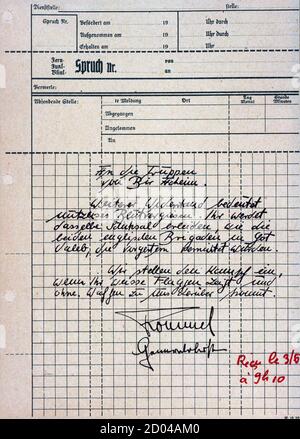 Dienststelle:
Stelle:
Spruch Nr.
Befördert am 19 Uhr durch
Aufgenommen am 19 Uhr durch
Erhalten am 19 Uhr durch
Fern-
Funk-
Blink-
Spruch Nr.
von
an
Vermerke:
Absendende Stelle:
te Meldung
Ort
Tag
Monat
Stunde
Minuten
Abgegangen
Angekommen
An
An die Truppen
von Bir Acheim.
Weiterer Widerstand bedeutet
nutzloses Blutvergiessen. Ihr werdet
dasselbe Schicksal erleiden, wie die
beiden englischen Brigaden in Got
Saleb, die vorgestern vernichtet wurden.
Wir stellen den Kampf ein,
wenn Ihr weisse Flaggen zeigt und
ohne Waffen zu uns herüber kommt.
Rommel
Generaloberst
Reçu le 3/6
à 9h10
alamy
Image ID: 2D04AM0
www.alamy.com